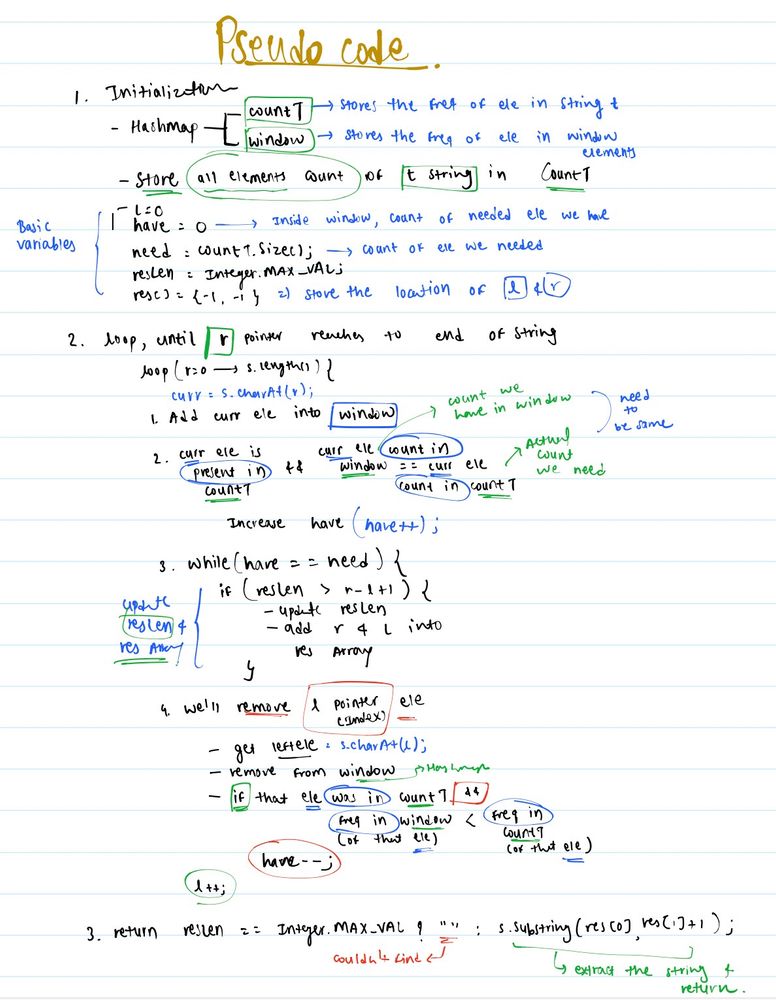 Pseudo code.
1. Initialization
- Hashmap
countT → stores the freq of ele in string t
window → stores the freq of ele in window elements
- Store all elements count of t string in CountT
Basic variables
- l=0
have = 0 → Inside window, count of needed ele we have
need = countT.size(); → count of ele we needed
resLen = Integer.MAX_VAL;
res[] = {-1, -1} => store the location of l & r
2. loop, until r pointer reaches to end of string
loop (r=0 → s.length()) {
curr = s.charAt(r);
1. Add curr ele into window
count we have in window
need to be same
2. curr ele is present in countT && curr ele count in window == curr ele count in countT
Actual count we need
Increase have (have++);
3. while (have == need) {
if (resLen > r-l+1) {
- update resLen
- add r & l into res Array
}
update resLen & res Array
4. we'll remove l pointer (index) ele
- get leftele = s.charAt(l);
- remove from window → Hashmap
- if that ele was in countT && freq in window (of that ele) < freq in countT (of that ele)
have--;
l++;
3. return resLen == Integer.MAX_VAL ? "" : s.substring(res[0], res[1]+1);
couldn't find
extract the string & return.